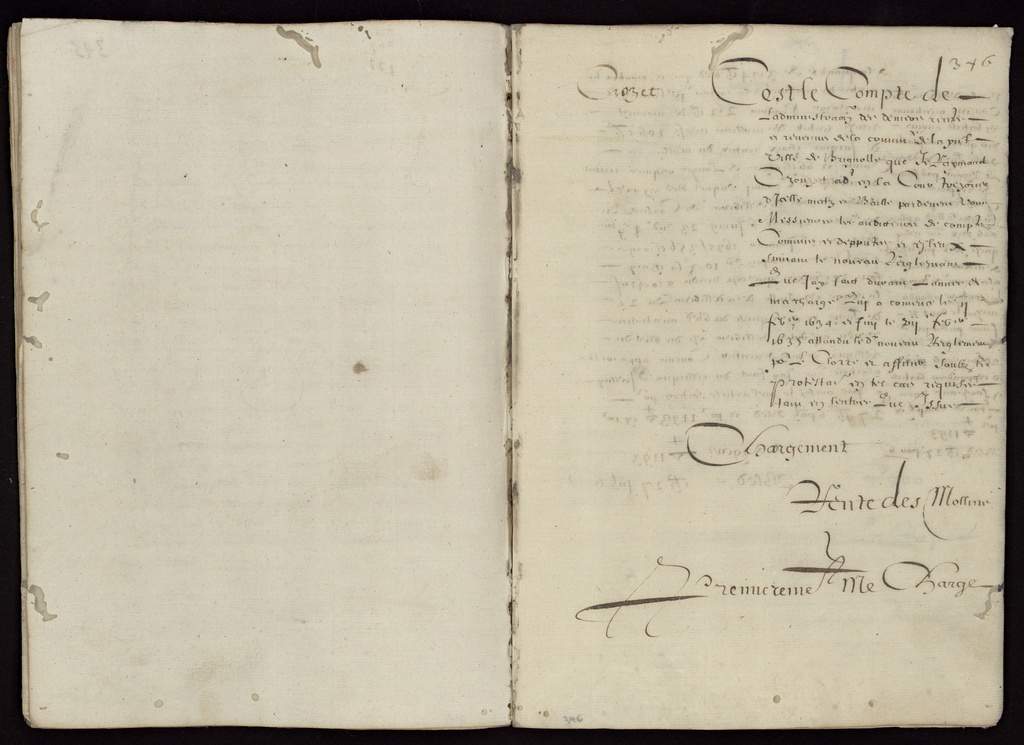 346
Crozet
Cest le Compte de
Ladministraon des deniers rentes
et revenus de la commté de la pnt
Ville de Brignolle que Je Raymond
Crozet adt en la Cour
dicelle metz et Baille pardevant Vous
Messieurs les auditeurs de compte
Commis et depputes et
suivant le nouveau Reglement
Que Jay fait durant Lannee de
ma charge Qui a comence le ii
febvr 1634 et fini le febvr
1635 attandu le dt nouveau Reglement
pnt Le Clorre et affiner soubz les
protestaons en tel cas requises
tant en lentree Que Issue
Chargement
Rente des Mollins
Premierement Me Charge
346